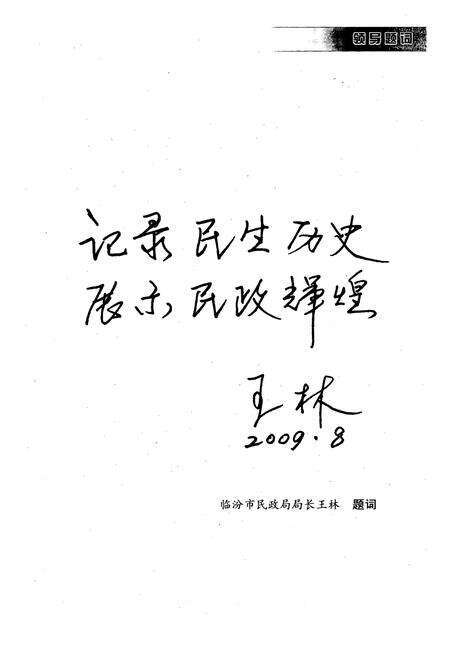 领导题词
记录民生历史
展示民政辉煌
王林
2009.8
临汾市民政局局长王林 题词